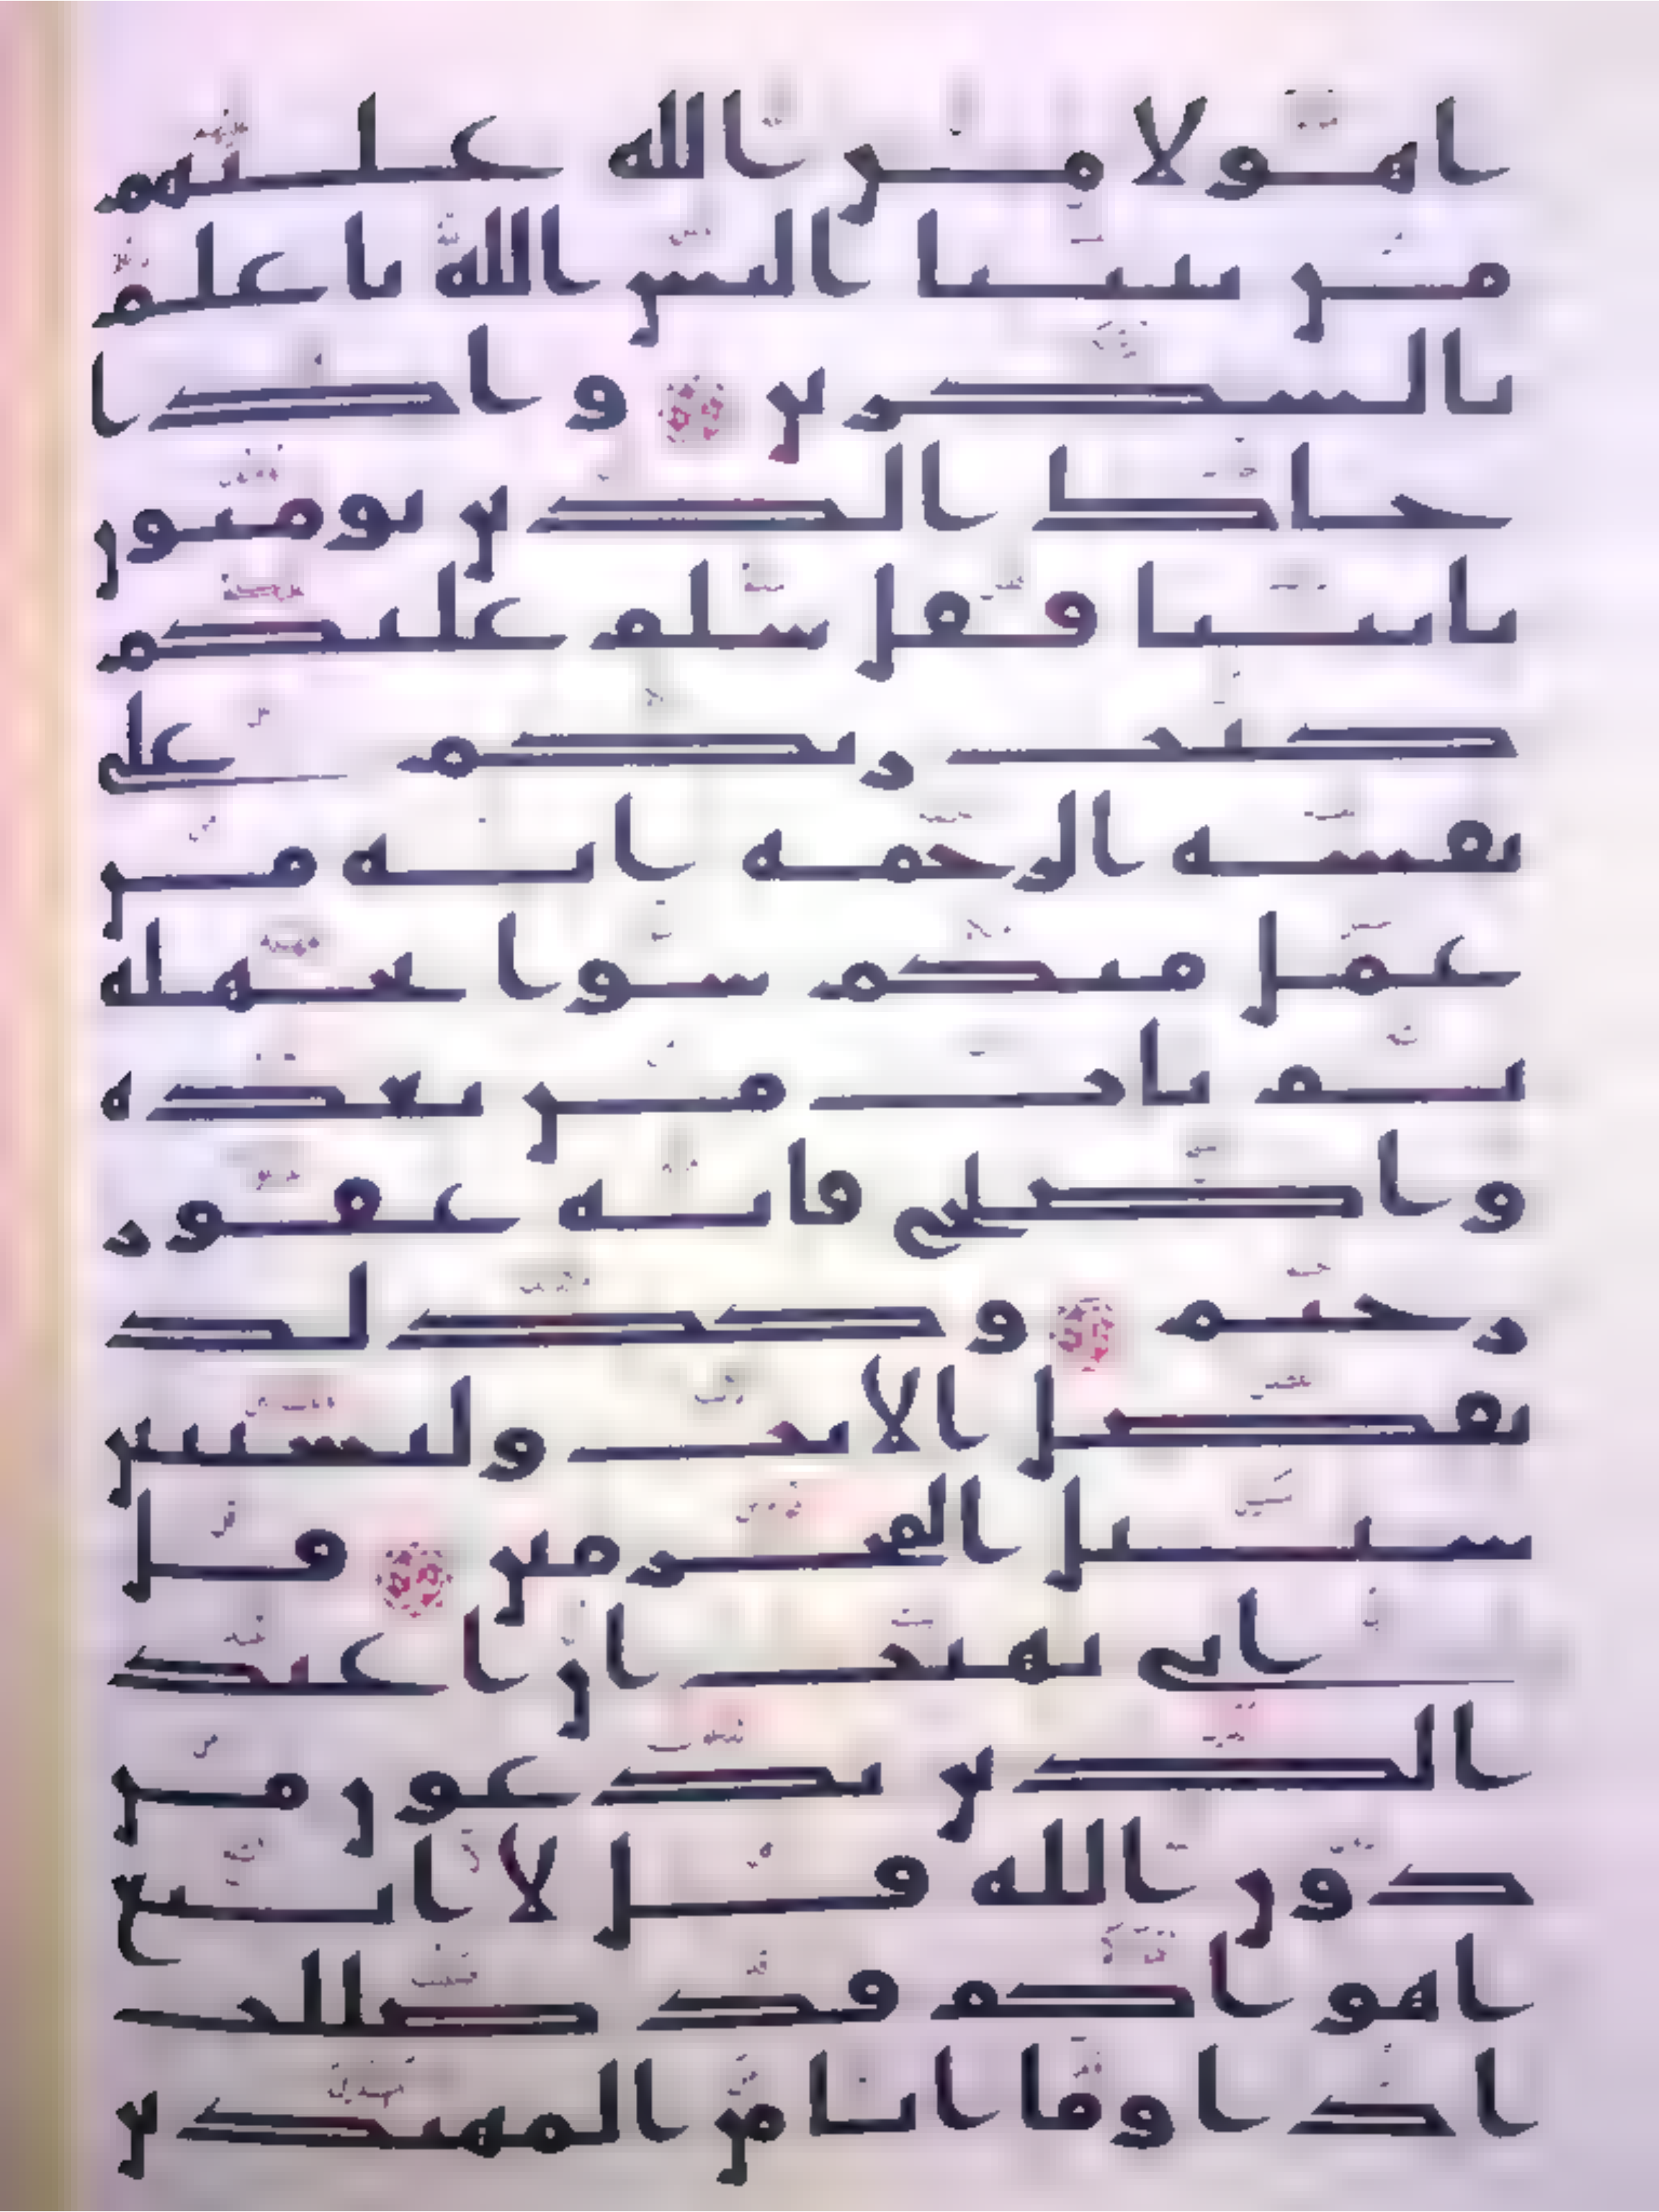 اهولا من الله عليهم
من بيننا اليس الله باعلم
بالشكرين واذا
جاك الذين يومنون
بايتنا فقل سلم عليكم
كتب ربكم على
نفسه الرحمه انه من
عمل منكم سوا بجهله
ثم تاب من بعده
واصلح فانه غفور
رحيم وكذلك
نفصل الايت ولتستبين
سبيل المجرمين قل
اني نهيت ان اعبد
الذين تدعون من
دون الله قل لا اتبع
اهواكم قد ضللت
اذا وما انا من المهتدين